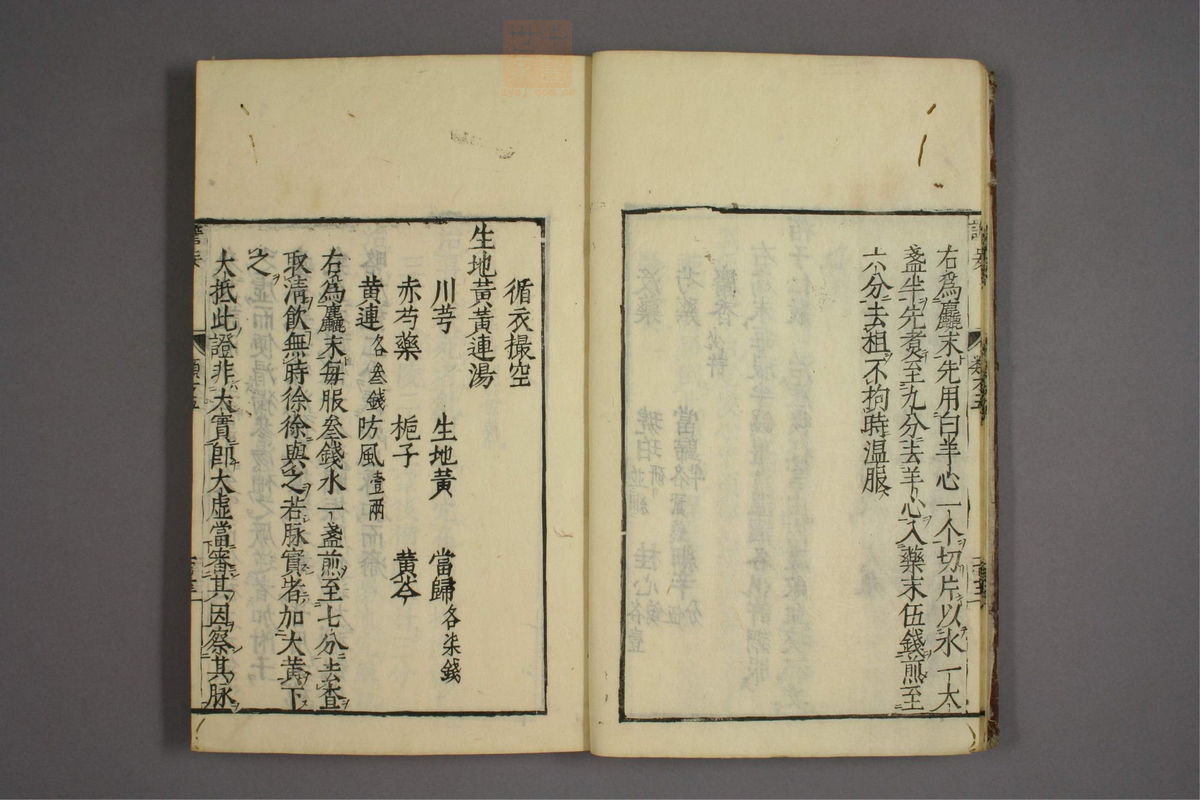 右爲麤末先用白羊心一个切片以水一大
盞半先煮至九分去羊心入藥末伍錢煎至
六分去柤不拘時温服
循衣撮空
生地黃黃連湯
川芎 生地黃 當歸各柒錢
赤芍藥 梔子 黄芩
黄連各叄錢 防風壹兩
右爲麤末每服叄錢水一盞煎至七分去查
取清飲無時徐徐與之若脉實者加大黄下
之
大抵此證非大實即大虚當審其因察其脉